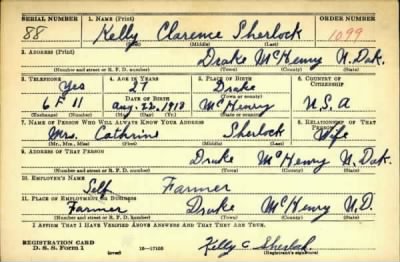 SERIAL NUMBER 1. NAME (Print) ORDER NUMBER
88 Kelly Clarence Sherlock 1099
(First) (Middle) (Last)
2. ADDRESS (Print)
Drake McHenry N. Dak.
(Number and street or R. F. D. number) (Town) (County) (State)
3. TELEPHONE 4. AGE IN YEARS 5. PLACE OF BIRTH 6. COUNTRY OF CITIZENSHIP
Yes 27 Drake
DATE OF BIRTH
6 F 11 Aug. 22, 1913 McHenry U.S.A
(Exchange) (Number) (Mo.) (Day) (Yr.) (State or country)
7. NAME OF PERSON WHO WILL ALWAYS KNOW YOUR ADDRESS 8. RELATIONSHIP OF THAT PERSON
Mrs. Cathrine Sherlock Wife
(Mr., Mrs., Miss) (First) (Middle) (Last)
9. ADDRESS OF THAT PERSON
Drake McHenry N. Dak.
(Number and street or R. F. D. number) (Town) (County) (State)
10. EMPLOYER'S NAME
Self Farmer
11. PLACE OF EMPLOYMENT OR BUSINESS
Farmer Drake McHenry N.D.
(Number and street or R. F. D. number) (Town) (County) (State)
I AFFIRM THAT I HAVE VERIFIED ABOVE ANSWERS AND THAT THEY ARE TRUE.
REGISTRATION CARD
D. S. S. Form 1 (over) 16—17105 Kelly C Sherlock
(Registrant's signature)